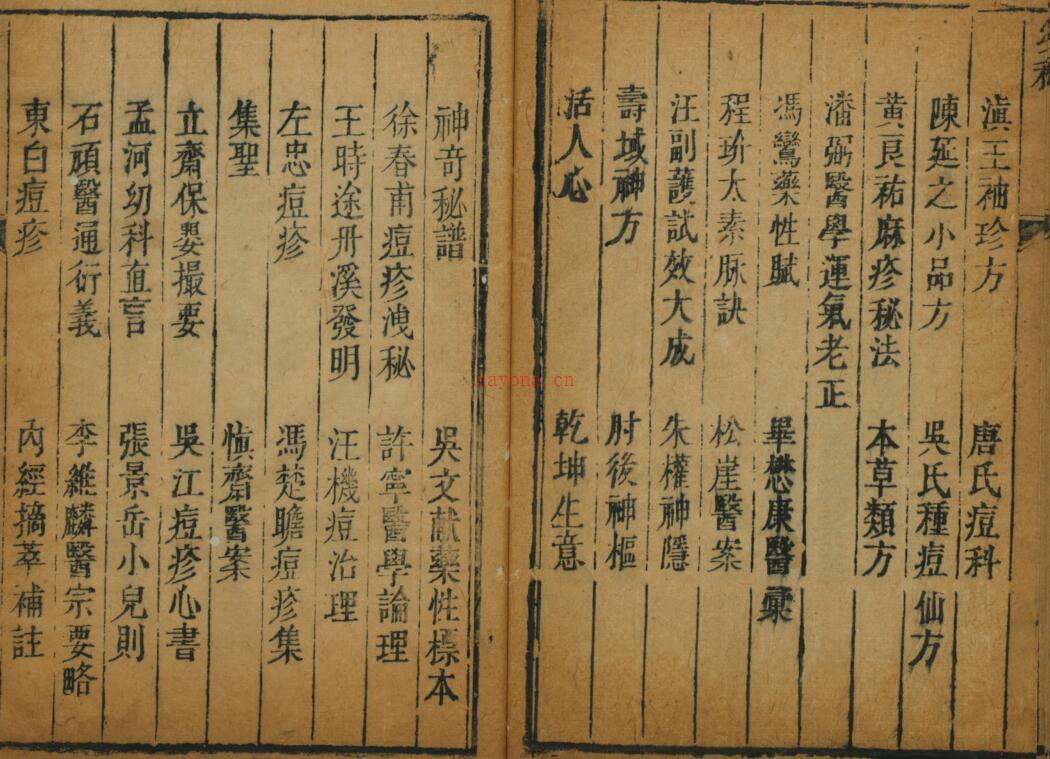 滇王袖珍方 唐氏痘科
陳延之小品方 吳氏種痘仙方
黃良祐麻疹秘法 本草類方
潘弼醫學運氣老正
馮鸞藥性賦 畢懋康醫彙
程玠太素脉訣 松崖醫案
汪副護試效大成 朱權神隱
壽域神方 肘後神樞
活人心 乾坤生意
神奇秘譜 吳文献藥性標本
徐春甫痘疹洩秘 許寧醫學論理
王時途丹溪發明 汪機痘治理
左忠痘疹 馮楚瞻痘疹集
集聖 慎齋醫案
立齋保嬰撮要 吳江痘疹心書
孟河幼科直言 張景岳小兒則
石頑醫通衍義 李維麟醫宗要略
東白痘疹 內經摘萃補註